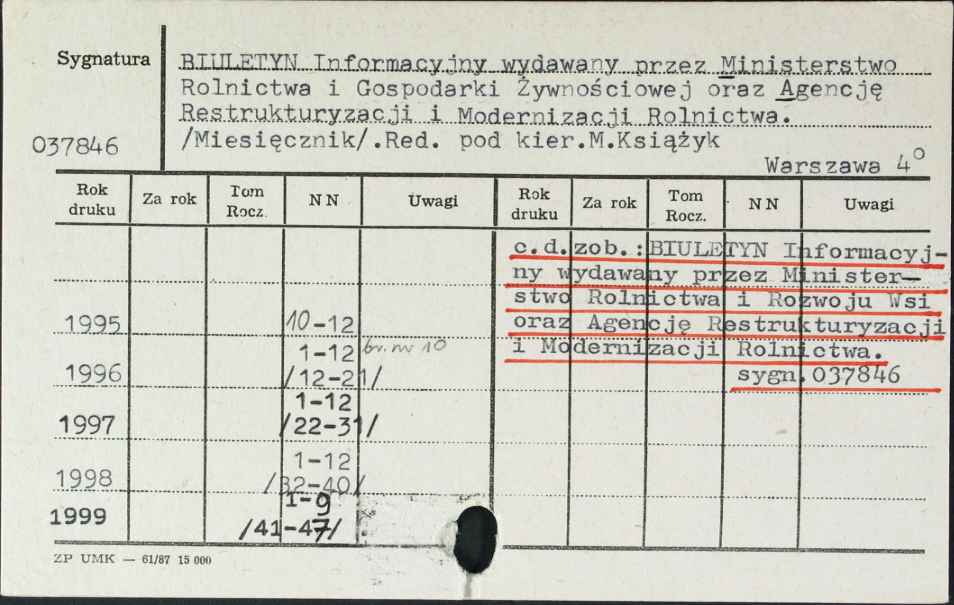 Sygnatura
BIULETYN Informacyjny wydawany przez Ministerstwo
Rolnictwa i Gospodarki Żywnościowej oraz Agencję
Restrukturyzacji i Modernizacji Rolnictwa.
037846 /Miesięcznik/.Red. pod kier.M.Książyk
Warszawa 4º
Rok druku Za rok Tom Rocz. NN Uwagi Rok druku Za rok Tom Rocz. NN Uwagi
c.d.zob.:BIULETYN Informacyj-
ny wydawany przez Minister-
stwo Rolnictwa i Rozwoju Wsi
oraz Agencję Restrukturyzacji
i Modernizacji Rolnictwa.
sygn.037846
1995 10-12
1996 1-12 br. nr 10
/12-21/
1997 1-12
/22-31/
1998 1-12
/32-40/
1999 1-9
/41-47/
ZP UMK — 61/87 15 000